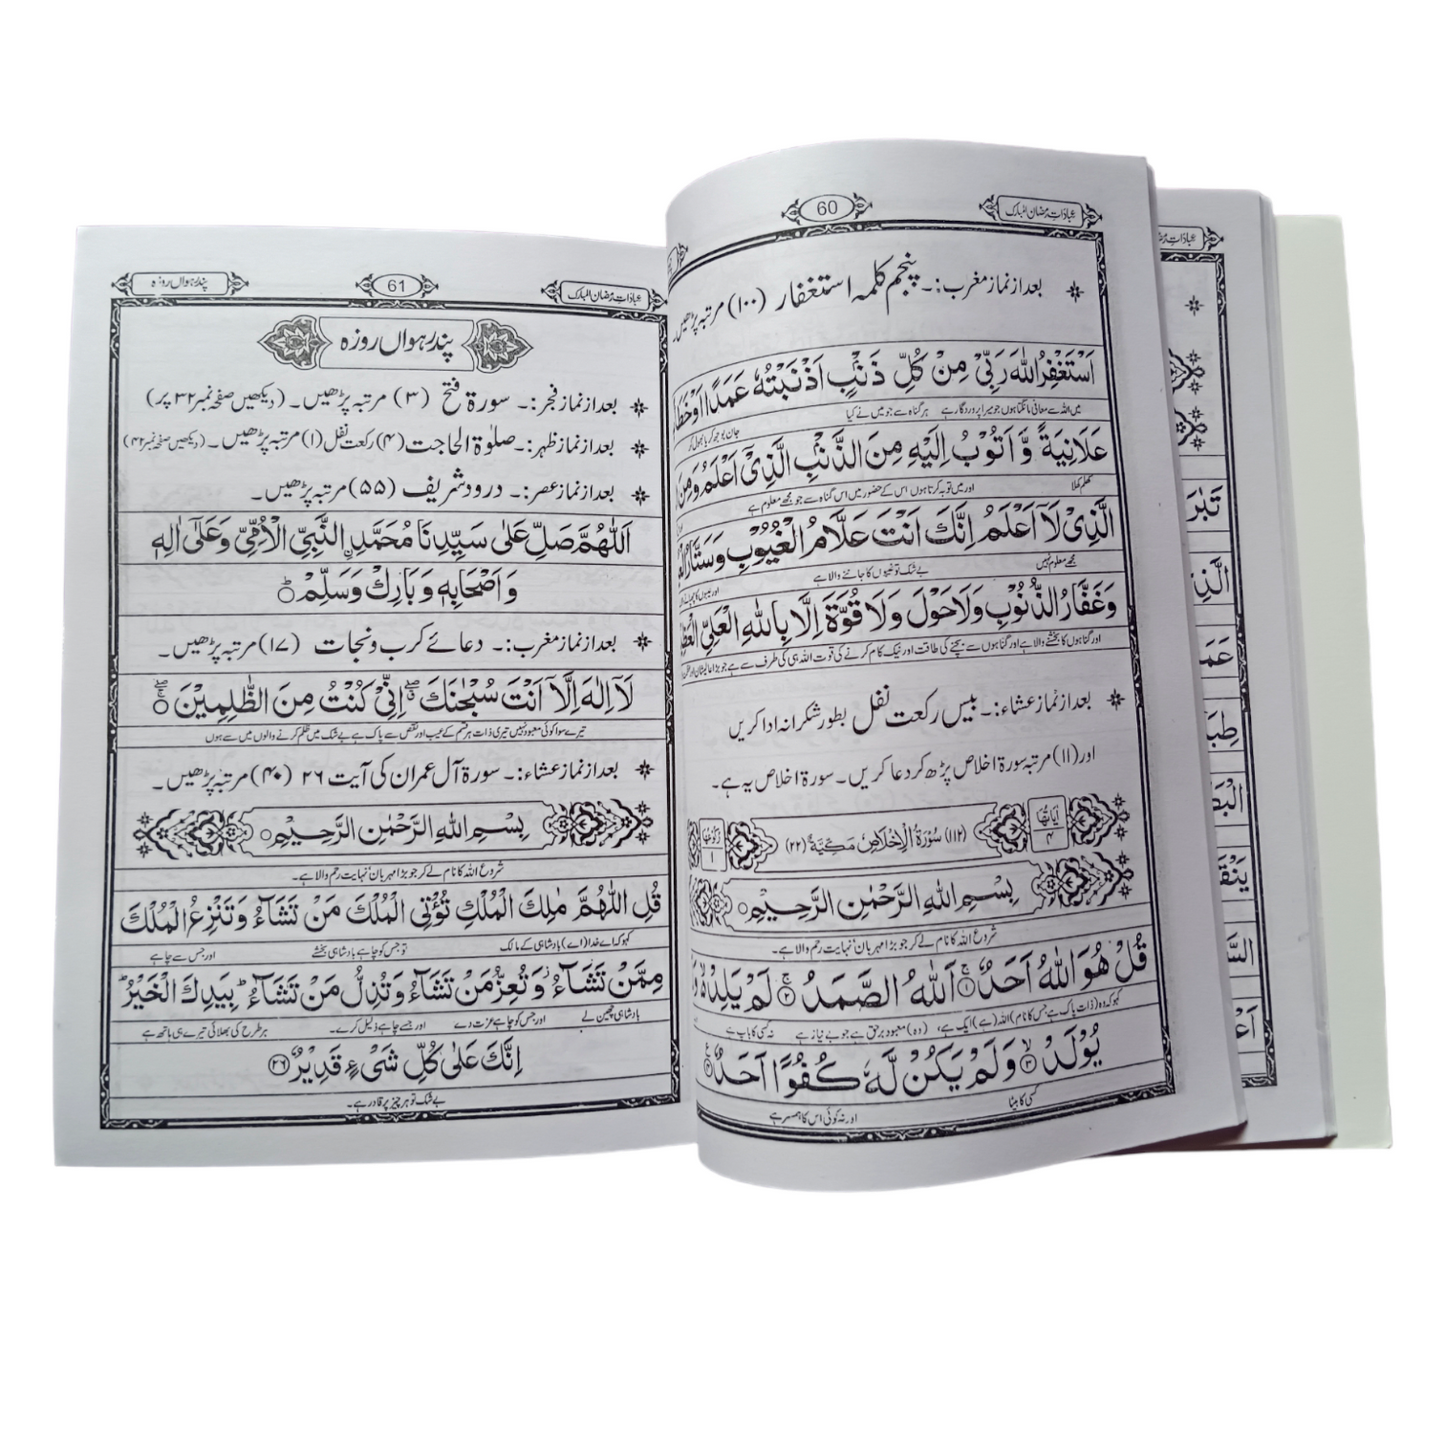 عبادات رمضان المبارک
60
بعد از نماز مغرب:۔ پنجم کلمہ استغفار (۱۰۰) مرتبہ پڑھیں۔
اَسْتَغْفِرُ اللّٰهَ رَبِّیْ مِنْ کُلِّ ذَنْۢبٍ اَذْنَبْتُهٗ عَمَدًا اَوْ
میں اللہ سے معافی مانگتا ہوں جو میرا پروردگار ہے ہر گناہ سے جو میں نے کیا جان بوجھ کر یا بھول کر
عَلَانِیَةً وَّ اَتُوْبُ اِلَیْهِ مِنَ الذَّنْۢبِ الَّذِیْ اَعْلَمُ وَمِنَ
کھلم کھلا اور میں توبہ کرتا ہوں اس کے حضور میں اس گناہ سے جو مجھے معلوم ہے
الَّذِیْ لَآ اَعْلَمُ اِنَّكَ اَنْتَ عَلَّامُ الْغُیُوْبِ وَسَتَّارُ
مجھے معلوم نہیں بے شک تو غیبوں کا جاننے والا ہے
وَغَفَّارُ الذُّنُوْبِ وَلَا حَوْلَ وَلَا قُوَّةَ اِلَّا بِاللّٰهِ الْعَلِیِّ
اور گناہوں کا بخشنے والا ہے اور گناہوں سے بچنے کی طاقت اور نیک کام کرنے کی قوت اللہ ہی کی طرف سے ہے جو بڑا عالیشان
بعد از نماز عشاء:۔ بیس رکعت نفل بطور شکرانہ ادا کریں
اور (۱۱) مرتبہ سورۃ اخلاص پڑھ کر دعا کریں۔ سورۃ اخلاص یہ ہے۔
اٰیَاتُهَا ۴ (۱۱۲) سُوْرَةُ الْاِخْلَاصِ مَکِّیَّةٌ (۲۲) رُکُوْعُهَا ۱
بِسْمِ اللّٰهِ الرَّحْمٰنِ الرَّحِیْمِ
شروع اللہ کا نام لے کر جو بڑا مہربان نہایت رحم والا ہے۔
قُلْ هُوَ اللّٰهُ اَحَدٌ ۱ اَللّٰهُ الصَّمَدُ ۲ لَمْ یَلِدْ وَ
کہو کہ وہ (ذات پاک ہے جس کا نام) اللہ (ہے) ایک ہے، (وہ) معبود برحق ہے جو بے نیاز ہے نہ کسی کا باپ ہے
یُوْلَدْ ۳ وَلَمْ یَکُنْ لَّهٗ کُفُوًا اَحَدٌ ۴
کسی کا بیٹا اور نہ کوئی اس کا ہمسر ہے
عبادات رمضان المبارک
61
پندرہواں روزہ
پندرہواں روزہ
بعد از نماز فجر:۔ سورۃ فتح (۳) مرتبہ پڑھیں۔ (دیکھیں صفحہ نمبر ۳۲ پر)
بعد از نماز ظہر:۔ صلوٰۃ الحاجت (۴) رکعت نفل (۱) مرتبہ پڑھیں۔ (دیکھیں صفحہ نمبر ۴۲)
بعد از نماز عصر:۔ درود شریف (۵۵) مرتبہ پڑھیں۔
اَللّٰهُمَّ صَلِّ عَلٰی سَیِّدِنَا مُحَمَّدِنِ النَّبِیِّ الْاُمِّیِّ وَعَلٰٓی اٰلِهٖ
وَ اَصْحَابِهٖ وَ بَارِكْ وَسَلِّمْ
بعد از نماز مغرب:۔ دعائے کرب و نجات (۱۷) مرتبہ پڑھیں۔
لَآ اِلٰهَ اِلَّآ اَنْتَ سُبْحٰنَكَ اِنِّیْ کُنْتُ مِنَ الظّٰلِمِیْنَ
تیرے سوا کوئی معبود نہیں تیری ذات ہر قسم کے عیب اور نقص سے پاک ہے بے شک میں ظلم کرنے والوں میں سے ہوں
بعد از نماز عشاء:۔ سورۃ آل عمران کی آیت ۲۶ (۴۰) مرتبہ پڑھیں۔
بِسْمِ اللّٰهِ الرَّحْمٰنِ الرَّحِیْمِ
شروع اللہ کا نام لے کر جو بڑا مہربان نہایت رحم والا ہے۔
قُلِ اللّٰهُمَّ مٰلِكَ الْمُلْكِ تُؤْتِی الْمُلْكَ مَنْ تَشَآءُ وَ تَنْزِعُ الْمُلْكَ
کہو کہ اے خدا (اے) بادشاہی کے مالک تو جس کو چاہے بادشاہی بخشے اور جس سے چاہے
مِمَّنْ تَشَآءُ وَ تُعِزُّ مَنْ تَشَآءُ وَ تُذِلُّ مَنْ تَشَآءُ بِیَدِكَ الْخَیْرُ
بادشاہی چھین لے اور جس کو چاہے عزت دے اور جسے چاہے ذلیل کرے۔ ہر طرح کی بھلائی تیرے ہی ہاتھ ہے
اِنَّكَ عَلٰی کُلِّ شَیْءٍ قَدِیْرٌ ۲۶
بے شک تو ہر چیز پر قادر ہے۔